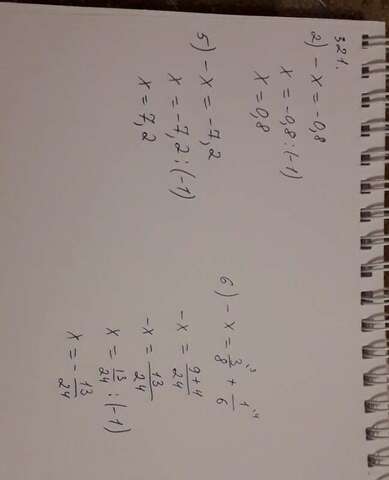 321.
2) - x = -0,8
x = -0,8 : (-1)
x = 0,8
5) - x = -7,2
x = -7,2 : (-1)
x = 7,2
6) - x = 3/8 ^3 + 1/6 ^4
-x = (9+4)/24
-x = 13/24
x = 13/24 : (-1)
x = - 13/24